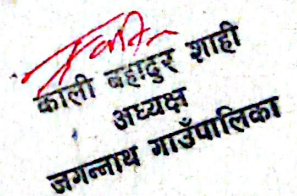 काली बहादुर शाही
अध्यक्ष
जगन्नाथ गाउँपालिका